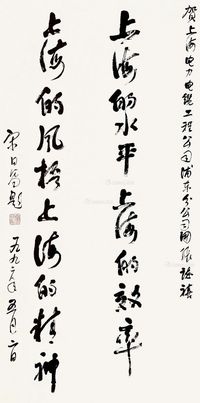 贺上海电力电缆工程公司浦东分公司开张誌禧
上海的水平上海的效率
上海的风格上海的精神
宋日昌题
一九九二年五月二日